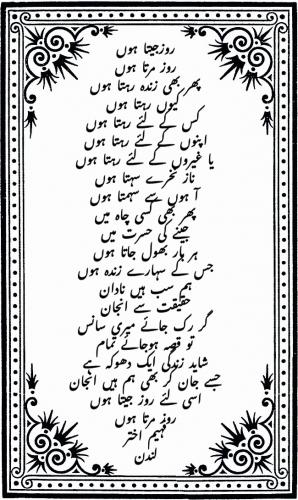 روز جیتا ہوں
روز مرتا ہوں
پھر بھی زندہ رہتا ہوں
کیوں رہتا ہوں
کس کے لئے رہتا ہوں
اپنوں کے لئے رہتا ہوں
یا غیروں کے لئے رہتا ہوں
ناز نخرے سہتا ہوں
آہوں سے سہمتا ہوں
پھر بھی کسی چاہ میں
جینے کی حسرت میں
ہر بار بھول جاتا ہوں
جس کے سہارے زندہ ہوں
ہم سب ہیں نادان
حقیقت سے انجان
گر رک جائے میری سانس
تو قصہ ہوجائے تمام
شاید زندگی ایک دھوکہ ہے
جسے جان کر بھی ہم ہیں انجان
اسی لئے روز جیتا ہوں
روز مرتا ہوں
فہیم اختر
لندن